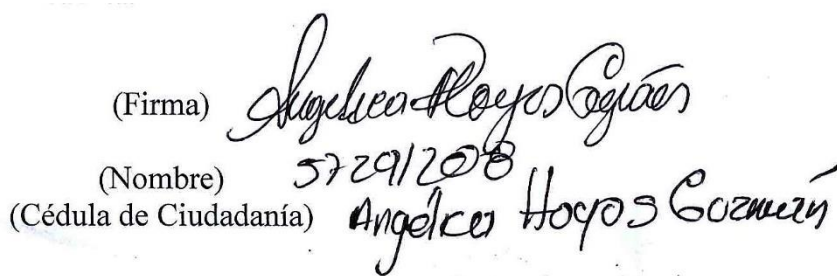 (Firma) Angelica Hoyos
(Nombre) 57291208
(Cédula de Ciudadanía) Angélica Hoyos Guzmán